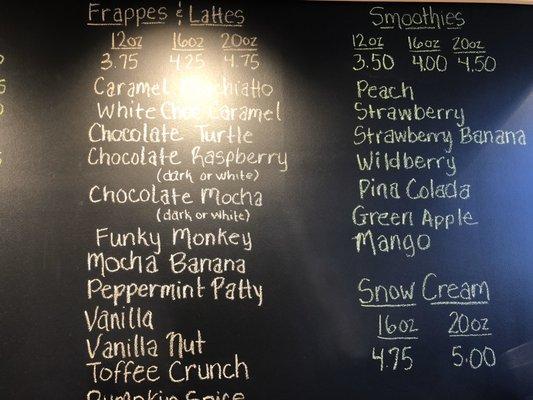 Frappes & Lattes
12oz 16oz 20oz
3.75 4.25 4.75
Caramel Macchiatto
White Choc Caramel
Chocolate Turtle
Chocolate Raspberry
(dark or white)
Chocolate Mocha
(dark or white)
Funky Monkey
Mocha Banana
Peppermint Patty
Vanilla
Vanilla Nut
Toffee Crunch
Pumpkin Spice
Smoothies
12oz 16oz 20oz
3.50 4.00 4.50
Peach
Strawberry
Strawberry Banana
Wildberry
Pina Colada
Green Apple
Mango
Snow Cream
16oz 20oz
4.75 5.00